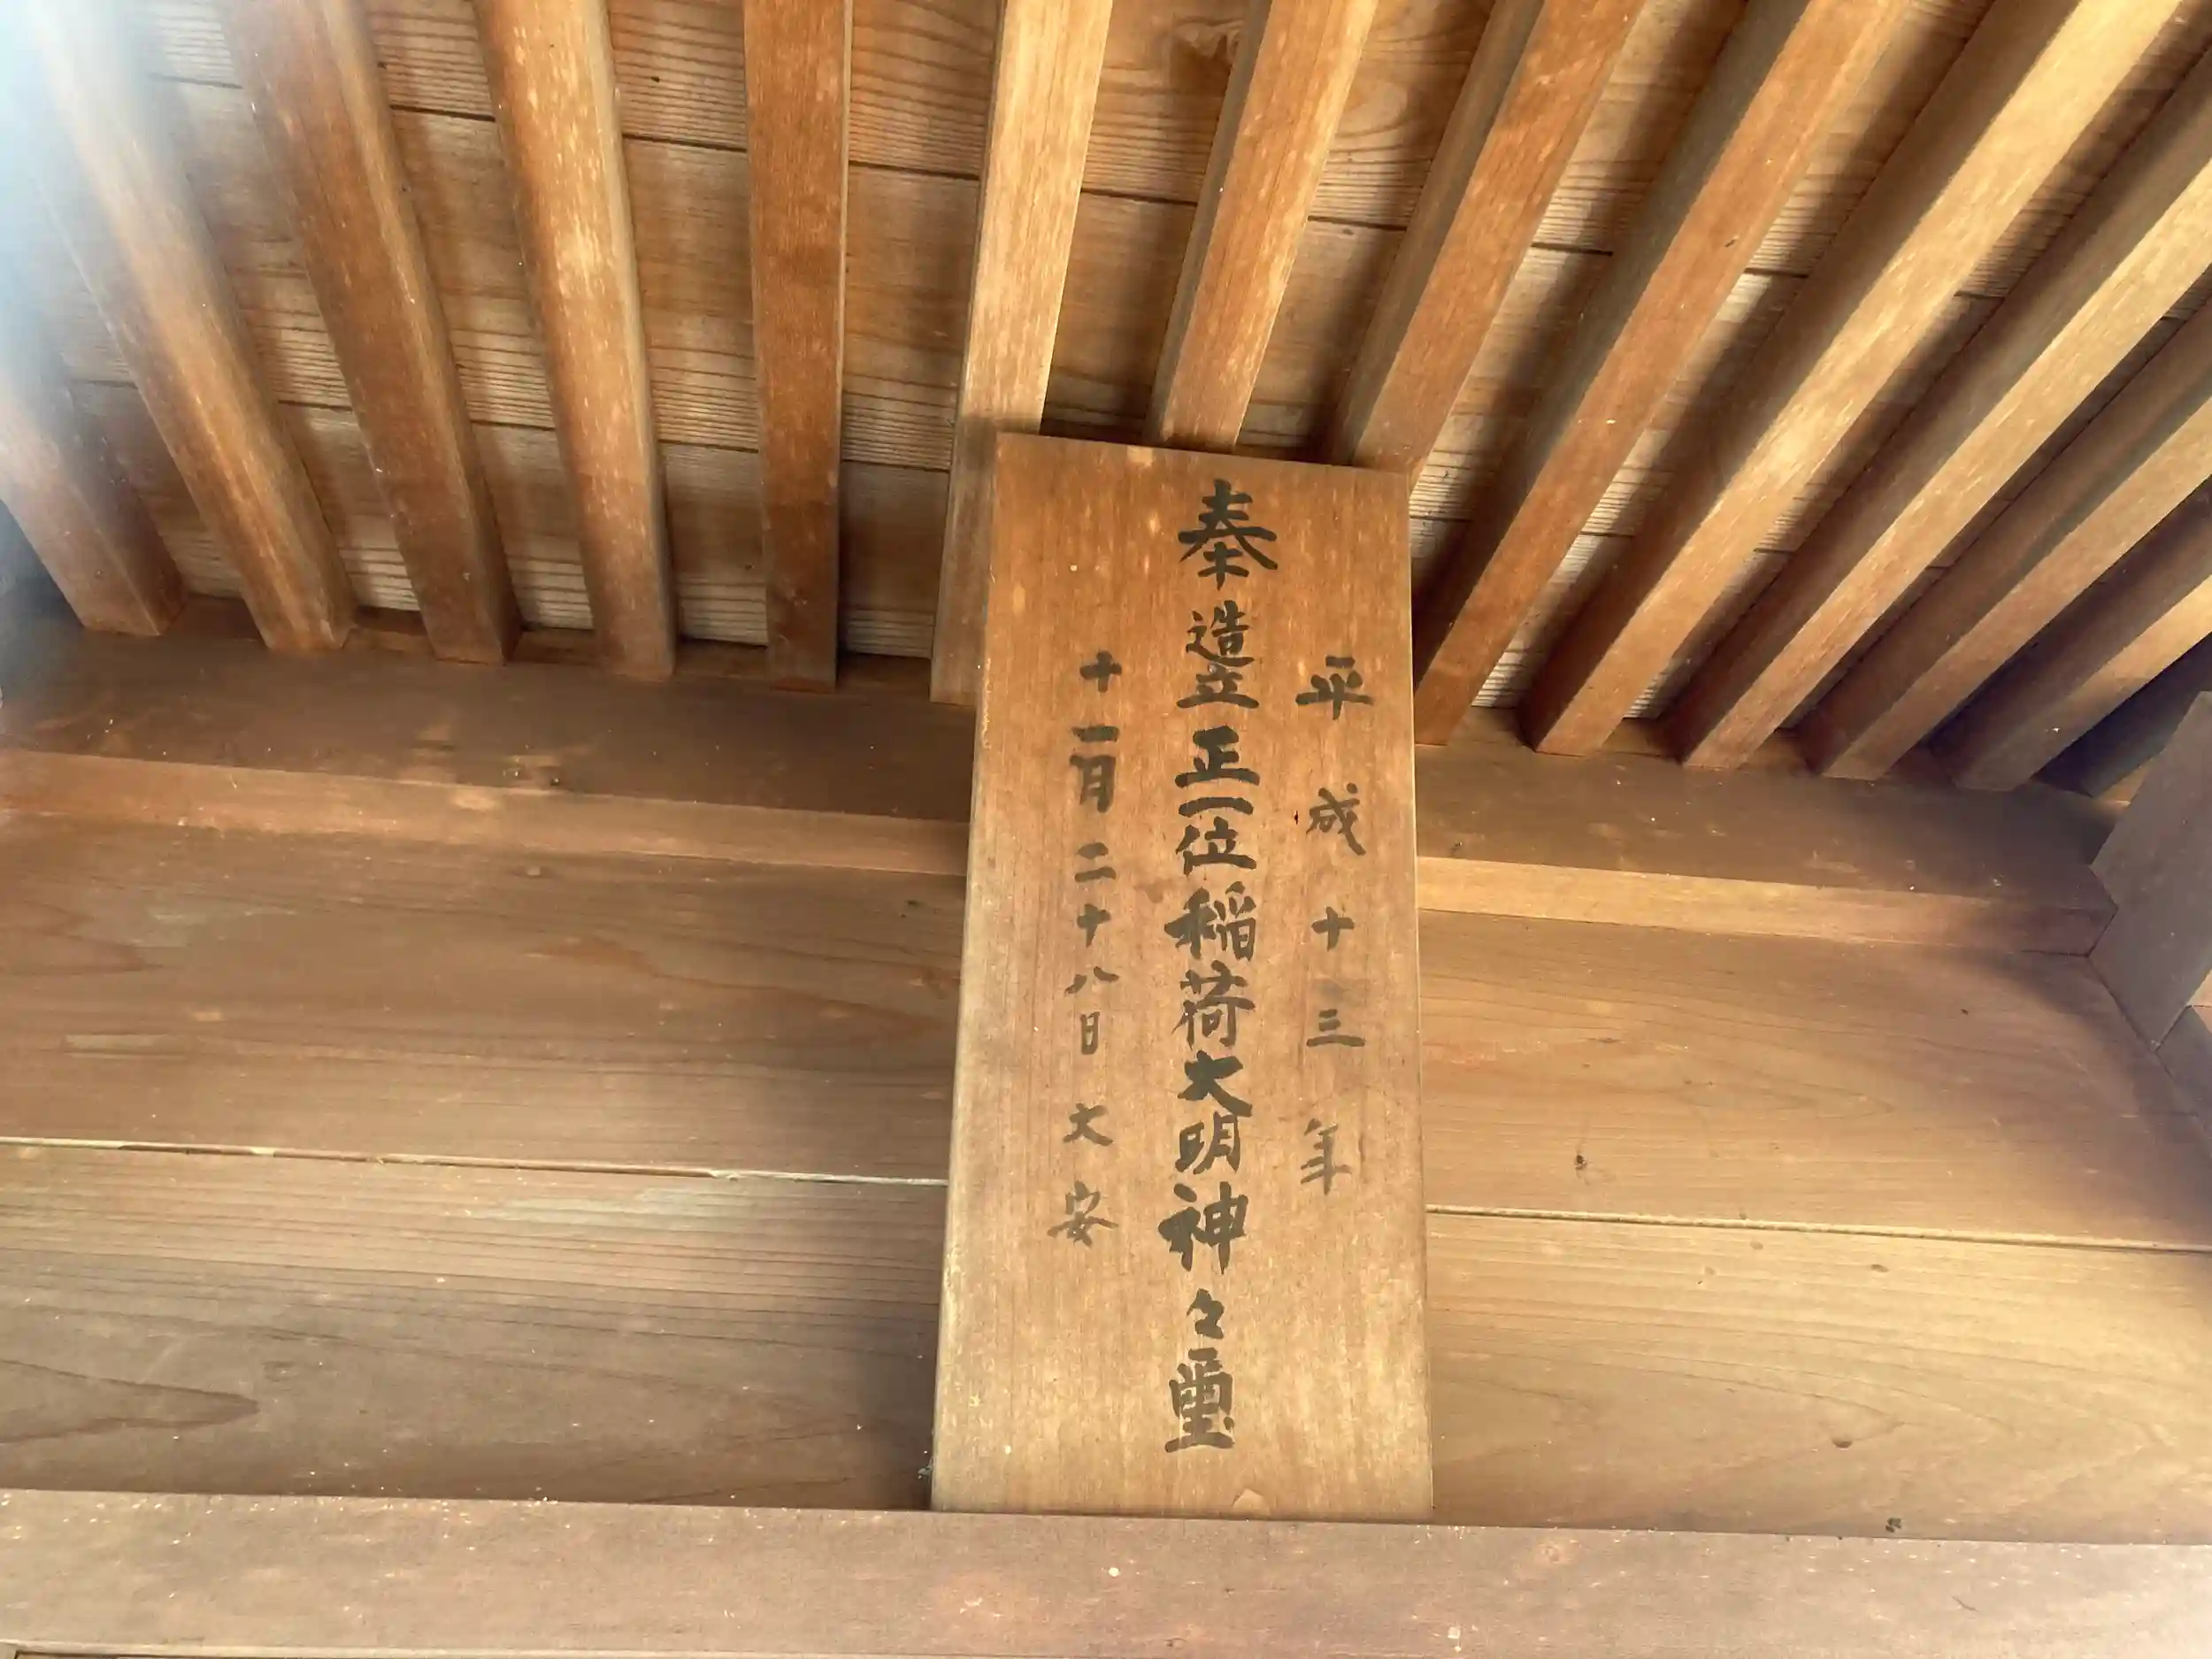 平成十三年
奉造立正一位稲荷大明神々璽
十一月二十八日大安